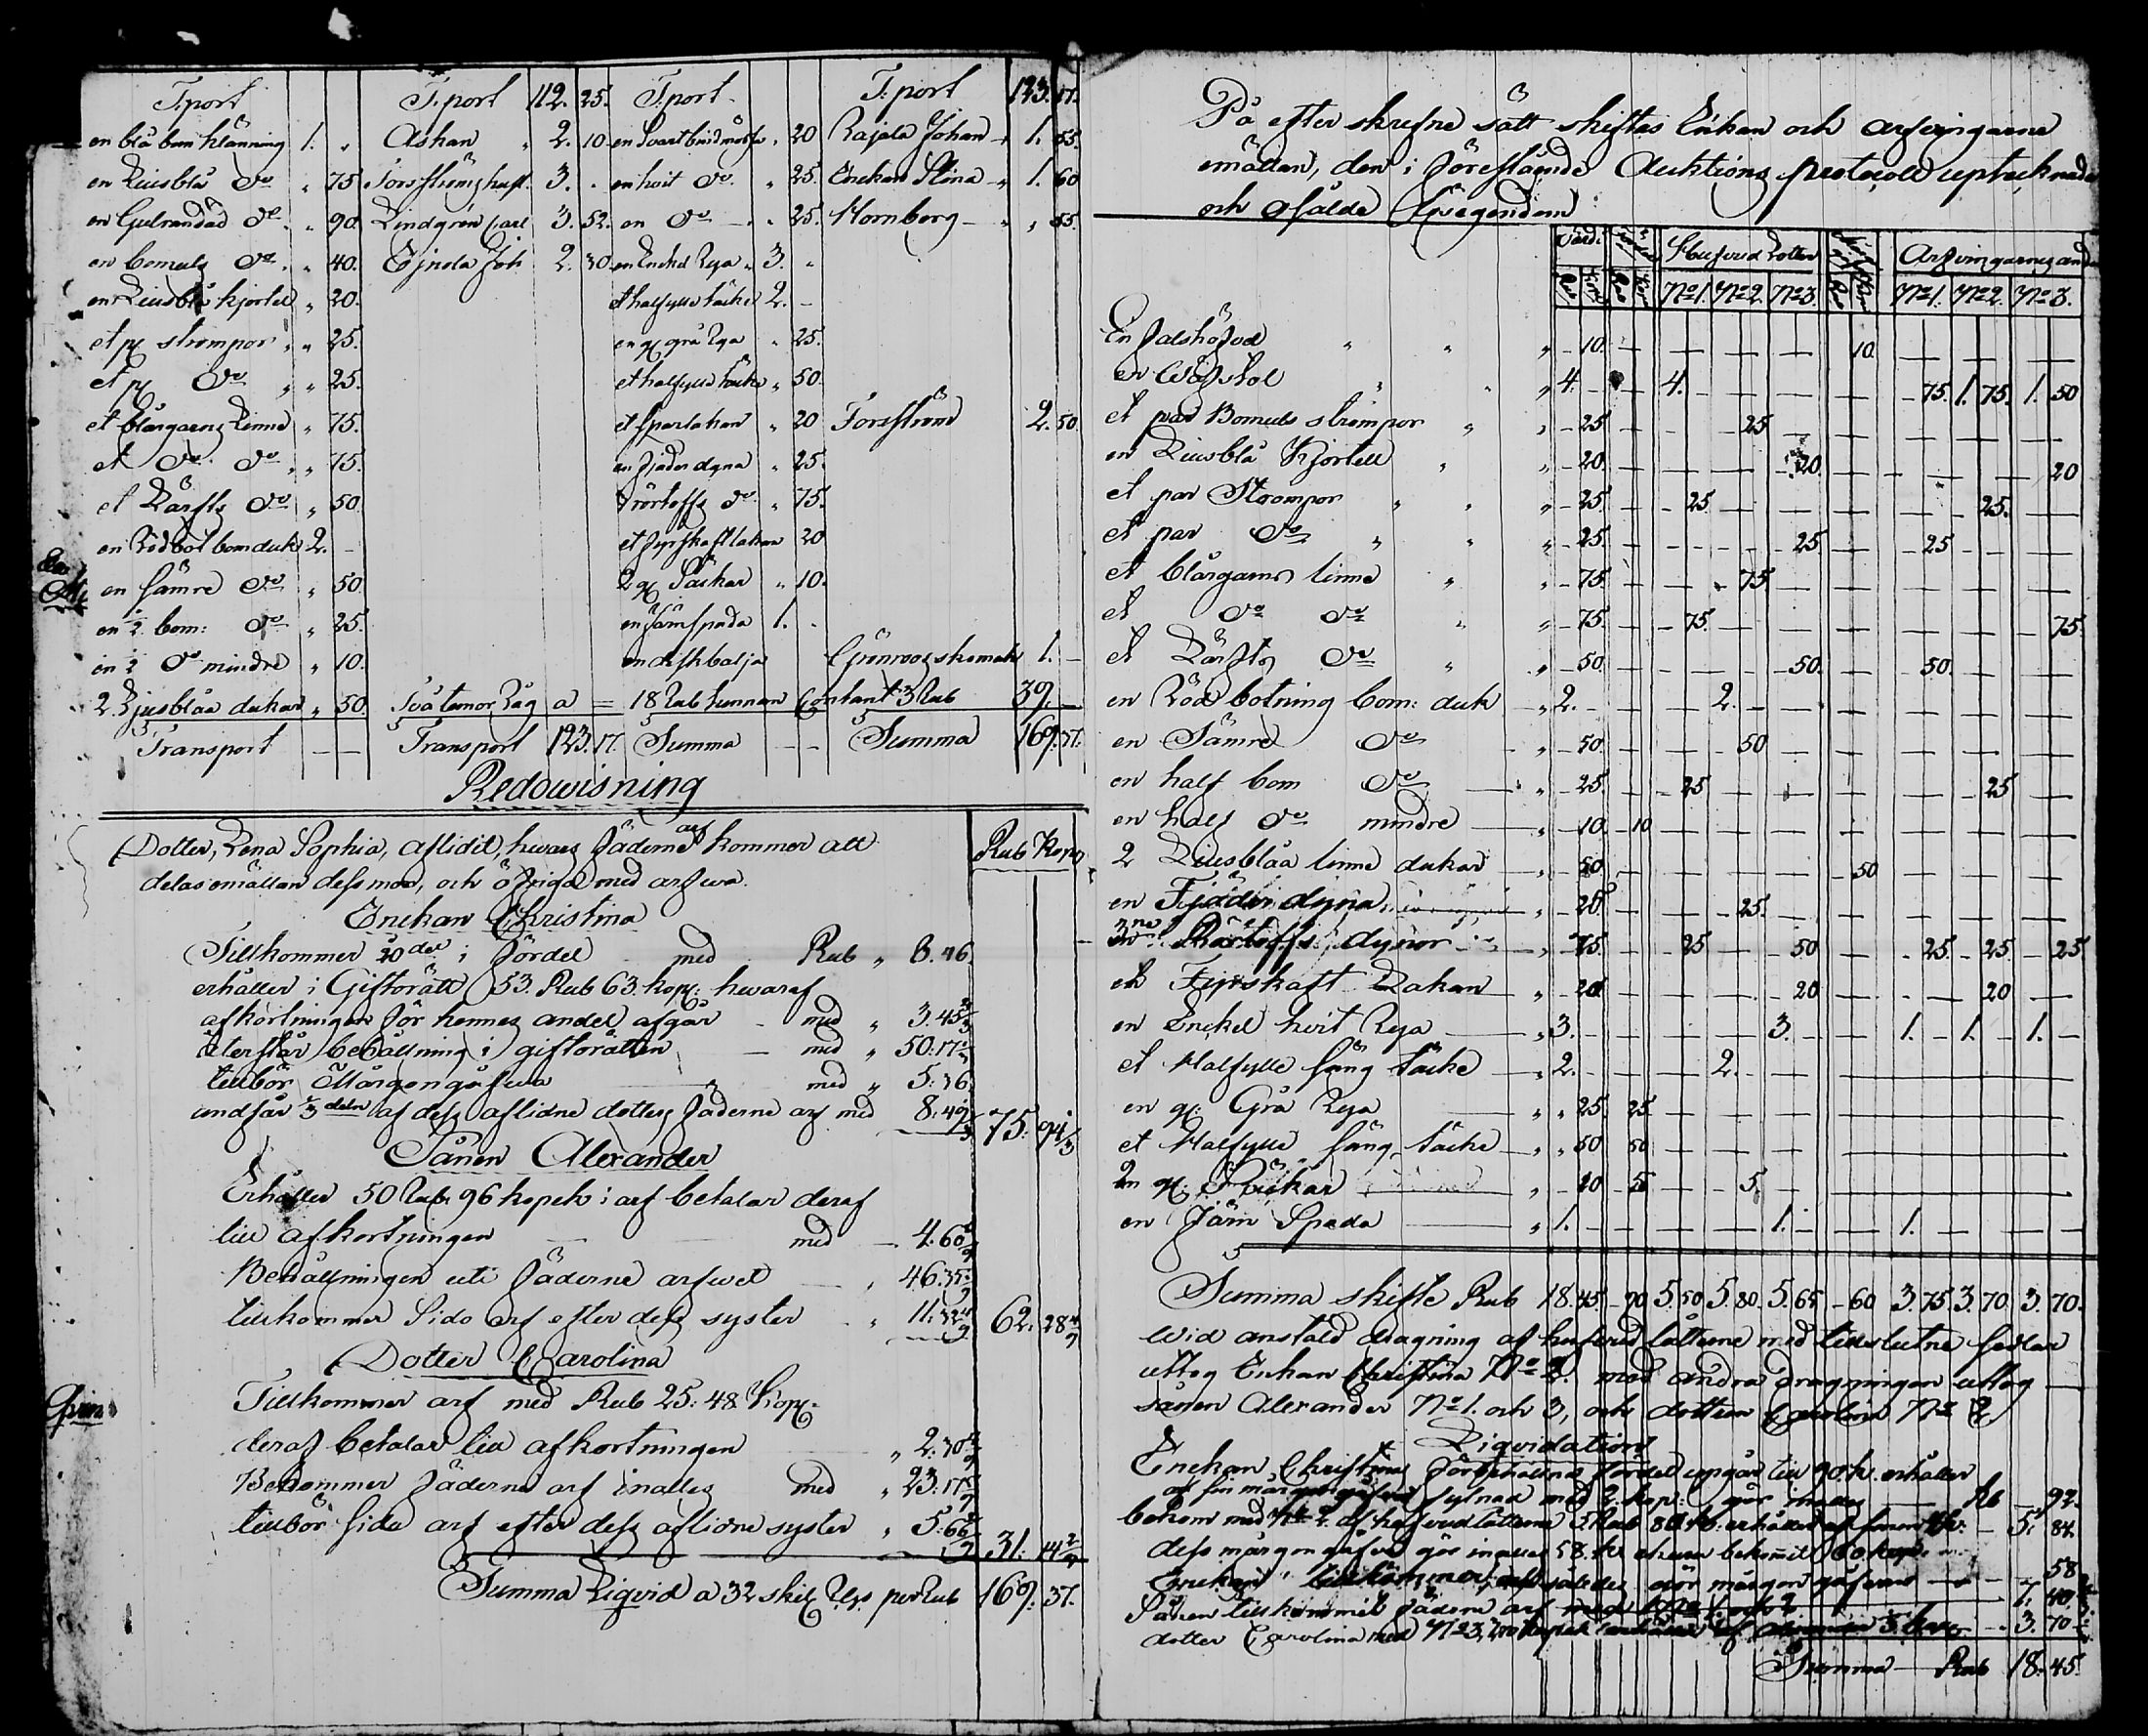 T:port T:port 112. 25. T:port T:port 123. 17.
en blå bom klänning 1. " Askan " 2. 10. en Svart bindmössa " 20 Rajala Johan " 1. 55.
en Liusblå do " 75 Forsströms hust. 3. - en hvit do " 25. Enckan Stina " 1. 60
en Gulrandad do " 90. Lindgren Carl 3. 52. en do " 25. Hornborg " " 55.
en bomuls do " 40. Joh 2. 30 en Enckel Rya " 3. "
en Liusblå kjortel " 20. et halfylle täcke 2. -
et pr strompor " " 25. en gl grå Rya " 25.
et pr do " " 25. et halfylle täcke " 50.
et blårgarns Linne " 75. et Sparlakan " 20 Forsström 2. 50
et do do " " 75. en fjäder dyna " 25.
et Lärfts do " 50 do " 75.
en Röd bot bom duk 2. - et fyrskaft lakan 20
en Sämre do " 50 2 gl Säckar " 10.
en ½ bom: do " 25. en Järnspada 1. -
en ½ do mindre " 10. en diskbalja Grönroos skomak 1. -
2 Ljusblåa dukar " 50. Två tunor Råg a = 18 Rub tunnan Contant 3 Rub 39. -
Transport - - Transport 123. 17. Summa - - Summa 169. 37.
Redowisning
Rub Kop
Dotter, Lena Sophia, aflidit, hwars Fäderne arf kommer att
delas emällan dess mor, och öfriga med arfwa.
Enckan Christina
Tillkommer 20 del i Fördel med Rub " 8. 46.
erhåller i Giftorätt 53. Rub 63. kop: hwaraf
afkortningen för hennes andel afgår - med " 3. 45
återstår behållning i giftorätten - med " 50: 17
tillbör Morgongåfwa med " 5. 36.
undfår ⅓ delen af dess aflidne dotters Fäderne arf med 8. 49 75. 94
Sånen Alexander
Erhåller 50 Rub. 96 kopek i arf betalar deraf
till afkortningen med - 4. 60
Behållningen uti Fäderne arfwet " 46. 35
tillkommer Sido arf efter dess syster " 11. 32 62. 28
Dotter Carolina
Tillkommer arf med Rub 25: 48 Kop:
deraf betalar till afkortningen " 2. 30
Bekommer Fäderne arf inalles med " 23: 17
tillbör Sido arf efter dess aflidne syster " 5. 66 31. 14
Summa Liqvid a 32 skil Rgs per Rub 169. 37.
På efter skrefne sätt skiftas Enkan och arfwingarne
emällan, den i förestående Auktions protocoll uptecknade
och osålde Egendom
Värde Hufvud Lotter Arfwingarnes andel
No 1. No 2. No 3. No 1. No 2. No 3.
En " " " - 10. - - - - 10. - - -
en Wäfstol " " " 4. - - 4. - - - - 75. 1. 75. 1. 50
et par Bomuls strompor " " - 25 - - 25 - - - - -
en Liusblå Kjortell " " - 20 - - - 20. - - - 20
et par Strompor " " " - 25. - 25. - - - - 25. -
et par do " " " - 25. - - - 25. - 25 - -
et blårgarns linne " " - 75. - - 75. - - - - -
et do do " " - 75. - 75. - - - - - 75.
et Lärfts do " " - 50. - - - 50. - 50. - -
en Röd botning bom: duk " 2. - - - 2. - - - - -
en Sämre do " - 50. - - 50 - - - - -
en half bom do " - 25 - 25 - - - - 25 -
en half do mindre " - 10 - 10 - - - - - - -
2 Liusblåa linne dukar " - 50 - - - - 50 - - -
en Fjäder dyna " - 25 - - 25. - - - - -
3ne dynor " - 75. - 25 - 50 - 25. - 25. - 25
et Fyrskaft Lakan " - 20 - - - 20 - - 20 -
en Enckel hvit Rya " 3. - - - - 3. - 1. - 1. - 1. -
et Halfylle säng täcke " 2. - - - 2. - - - - -
en gl: Grå Rya " " 25 25 - - - - - - -
et Halfylle säng täcke " " 50 50 - - - - - - -
2n gl: Säckar " - 10 - 5 - - 5 - - - - -
en Järn Spada " 1. - - - - 1. - 1. - - -
Summa skifte Rub 18. 45 - 90 5. 50 5. 80. 5. 65 - 60 3. 75. 3. 70. 3. 70.
Wid anstald dragning af hufvud lotterne med tillslutne sedlar
uttog Enkan Christina No 2. med andra dragningen uttog
sånen Alexander No 1. och 3, och dottren Carolina No 2
Liqvidation
Enckan Christinas Fördel upgår till 90 k. erhåller
af sin fylnad med 2. kop: gör inalles Rb - 92.
bekom med No 2. af hufvud lotterne 5 Rub 80 k: erhåller af - 5. 84.
dess morgongåfva gör inalles 58. k: bekomit 60 kop:
Enckan tillkommer således morgongåfvan - - 58
Sånen tillkommit Fäderne arf med No 1. och 2. 7. 40.
dotter Carolina med No 3. 3. 70
Summa Rub 18. 45.